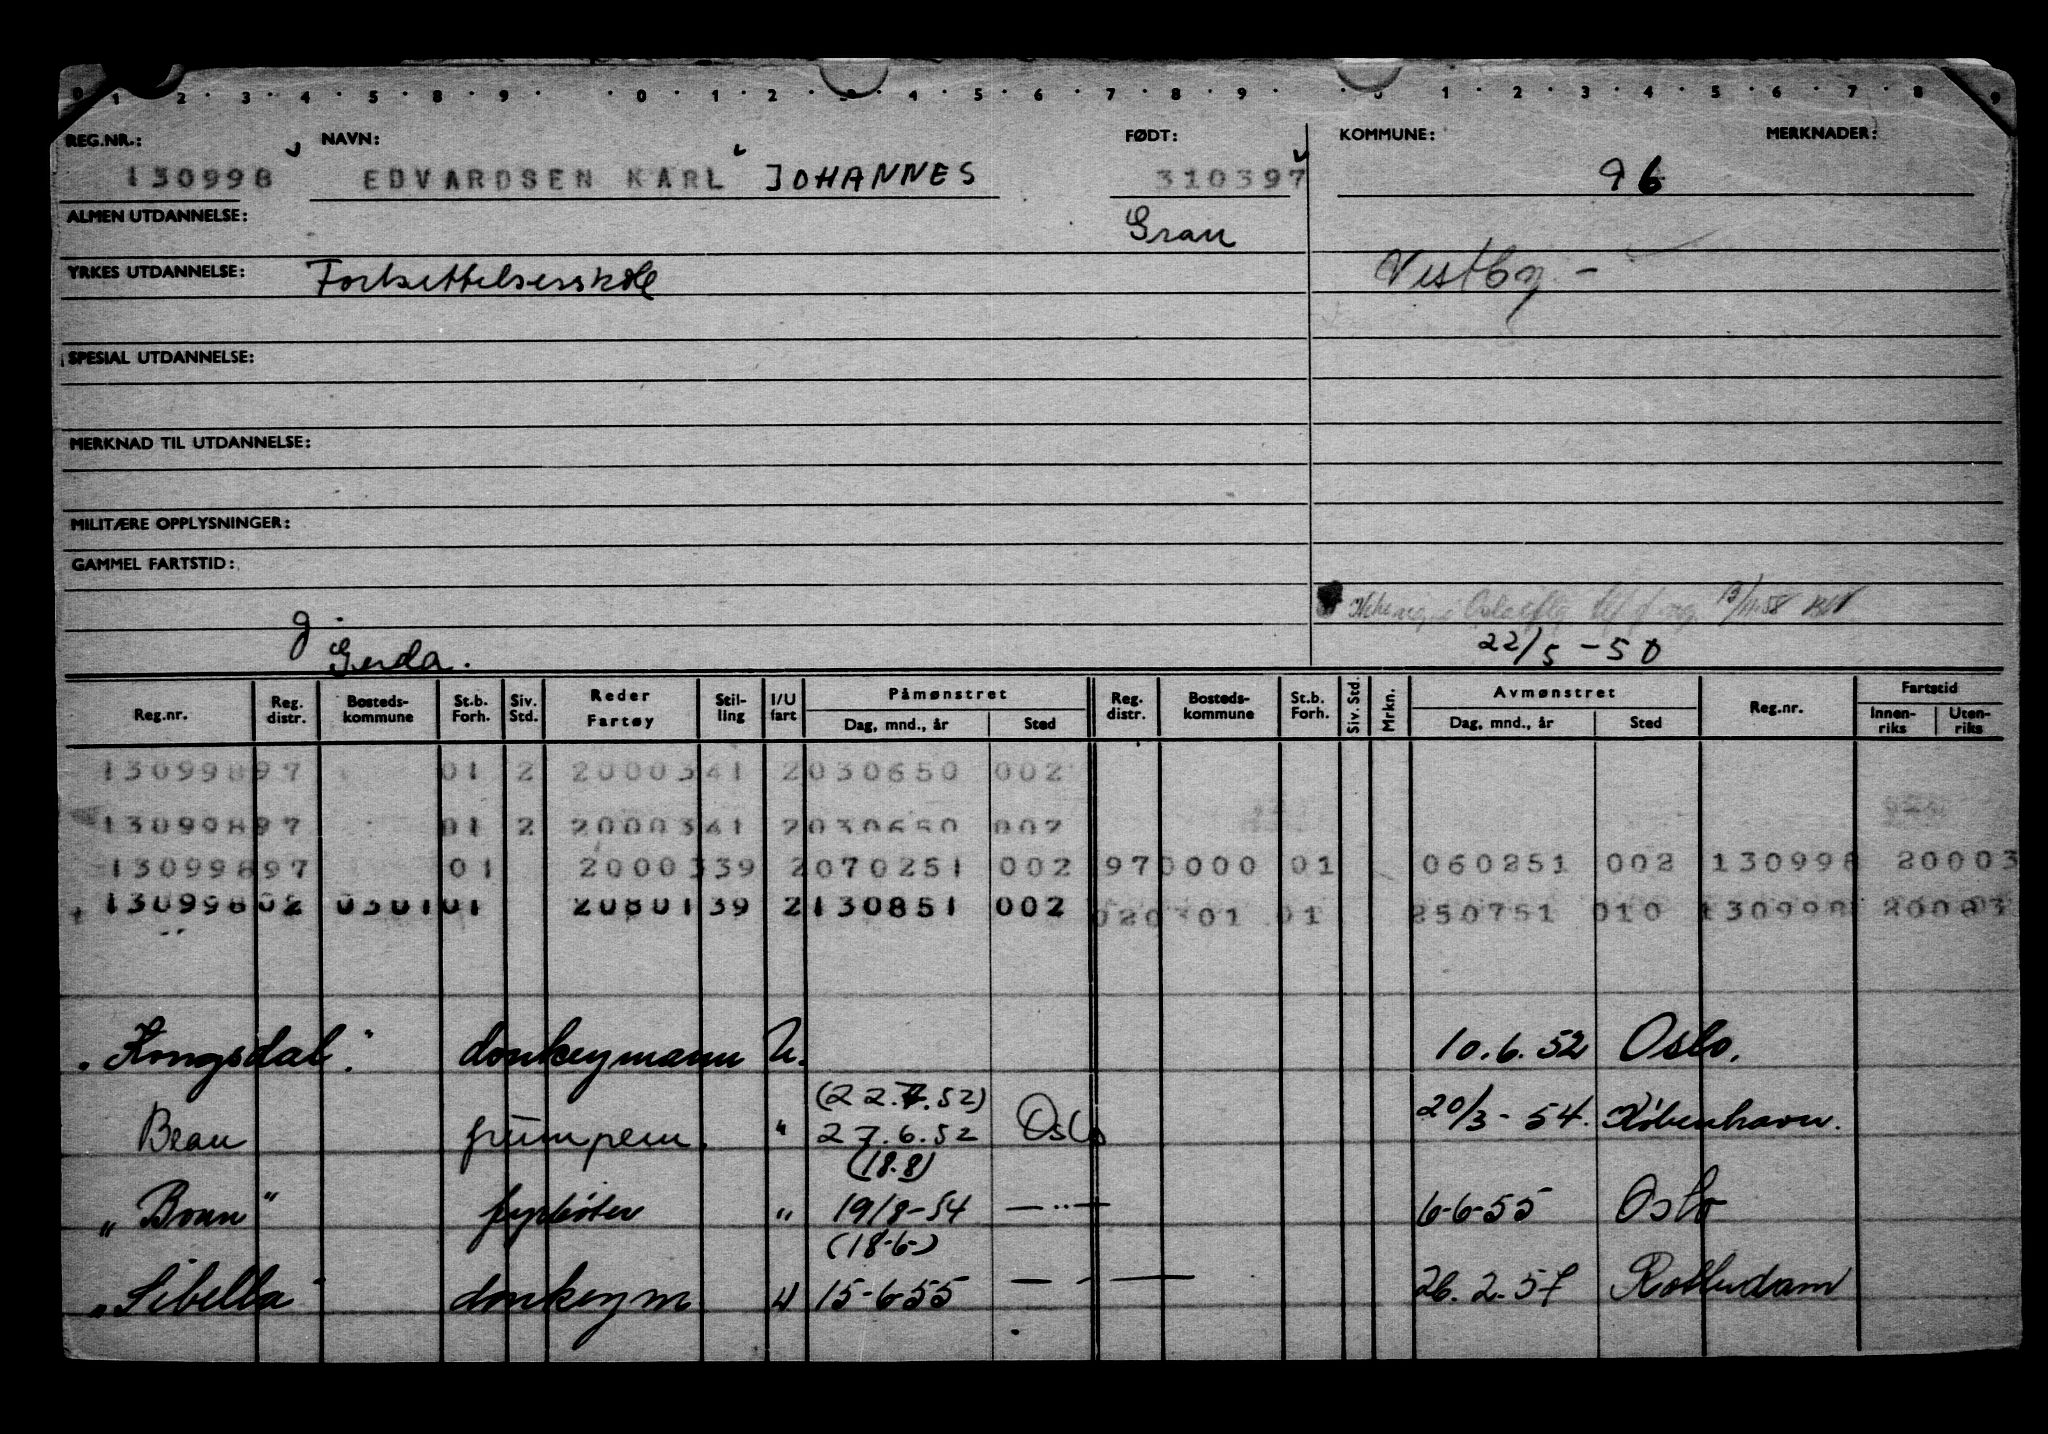 0 1 2 3 4 5 8 9 0 1 2 3 4 5 6 7 8 9 0 1 2 3 4 5 6 7 8 9
REG.NR.: NAVN: FØDT: KOMMUNE: MERKNADER:
130998 EDVARDSEN KARL JOHANNES 310397 96
ALMEN UTDANNELSE: Gran
YRKES UTDANNELSE: Fortsettelsesskole Vestby -
SPESIAL UTDANNELSE:
MERKNAD TIL UTDANNELSE:
MILITÆRE OPPLYSNINGER:
GAMMEL FARTSTID:
13/11-58
g. 22/5 - 50
Gerda.
Reg.nr. Reg. distr. Bosteds-kommune St.b. Forh. Siv. Std. Reder Fartøy Stil-ling I/U fart Påmønstret Dag, mnd., år Sted Reg. distr. Bosteds-kommune St.b. Forh. Siv. Std. Mrkn. Avmønstret Dag, mnd., år Sted Reg.nr. Fartstid Innen-riks Uten-riks
13099897 01 2 2000341 2030650 002
13099897 01 2 2000341 2030650 002
13099897 01 2000339 2070251 002 970000 01 060251 002 130998 20003
13099802 030101 2080139 2130851 002 020301 01 250751 010 130998
"Kongsdal". donkeymann U. 10.6.52 Oslo.
(22.7.52)
Bran pumpem. " 27.6.52 Oslo 20/3-54. København.
(18.8)
"Bonn" fyrbøter " 19/8-54 — " — 6-6-55 Oslo
(18-6-)
"Sibella" donkeym U 15-6-55 — " — 26.2.57 Rotterdam